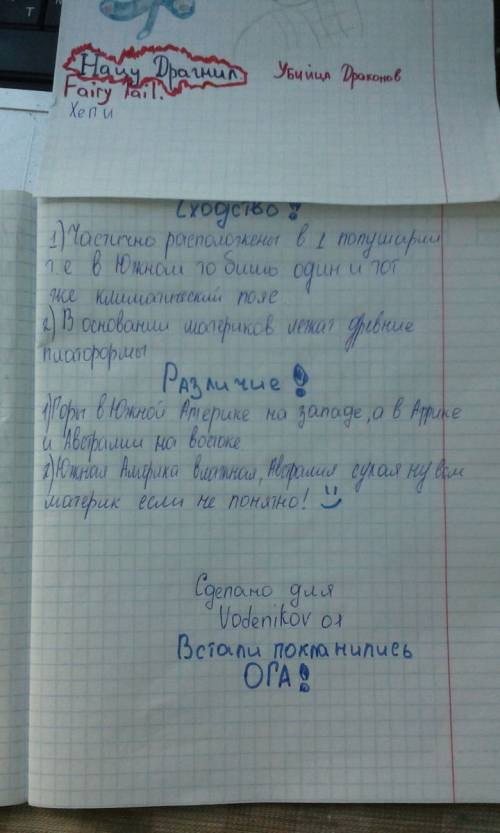 Нацу Драгнил.
Убийца Драконов
Fairy Tail.
Хепи
Сходство!
1) Частично расположены в 1 полушарии
т.е в Южном то бишь один и тот
же климатический пояс
2) В основании материков лежат древние
платформы
Различие!
1) Горы в Южной Америке на западе, а в Африке
и Австралии на востоке
2) Южная Америка влажная, Австралия сухая ну вом
материк если не понятно!
Сделано для
Vodenikov ол
Встали покланились
ОГА!